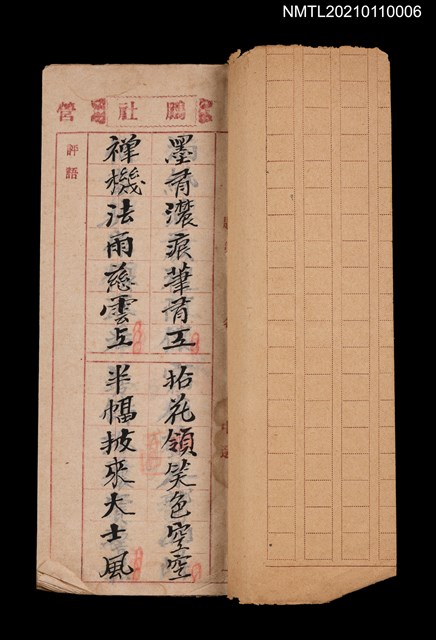 NMTL20210110006
鷗社
營
評語
墨有濃痕筆有工
拈花領笑色空空
禪機法雨慈雲上
半幅披來大士風